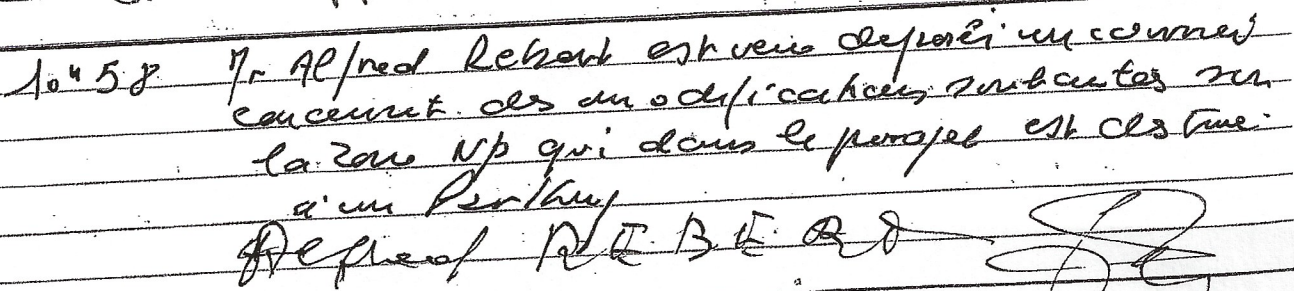 10h58 Mr Alfred Rebert est venu déposer un courrier
concernt des modifications souhaités sur
la zone Np qui dans le projet est destiné
à un Parking
Alfred REBERT